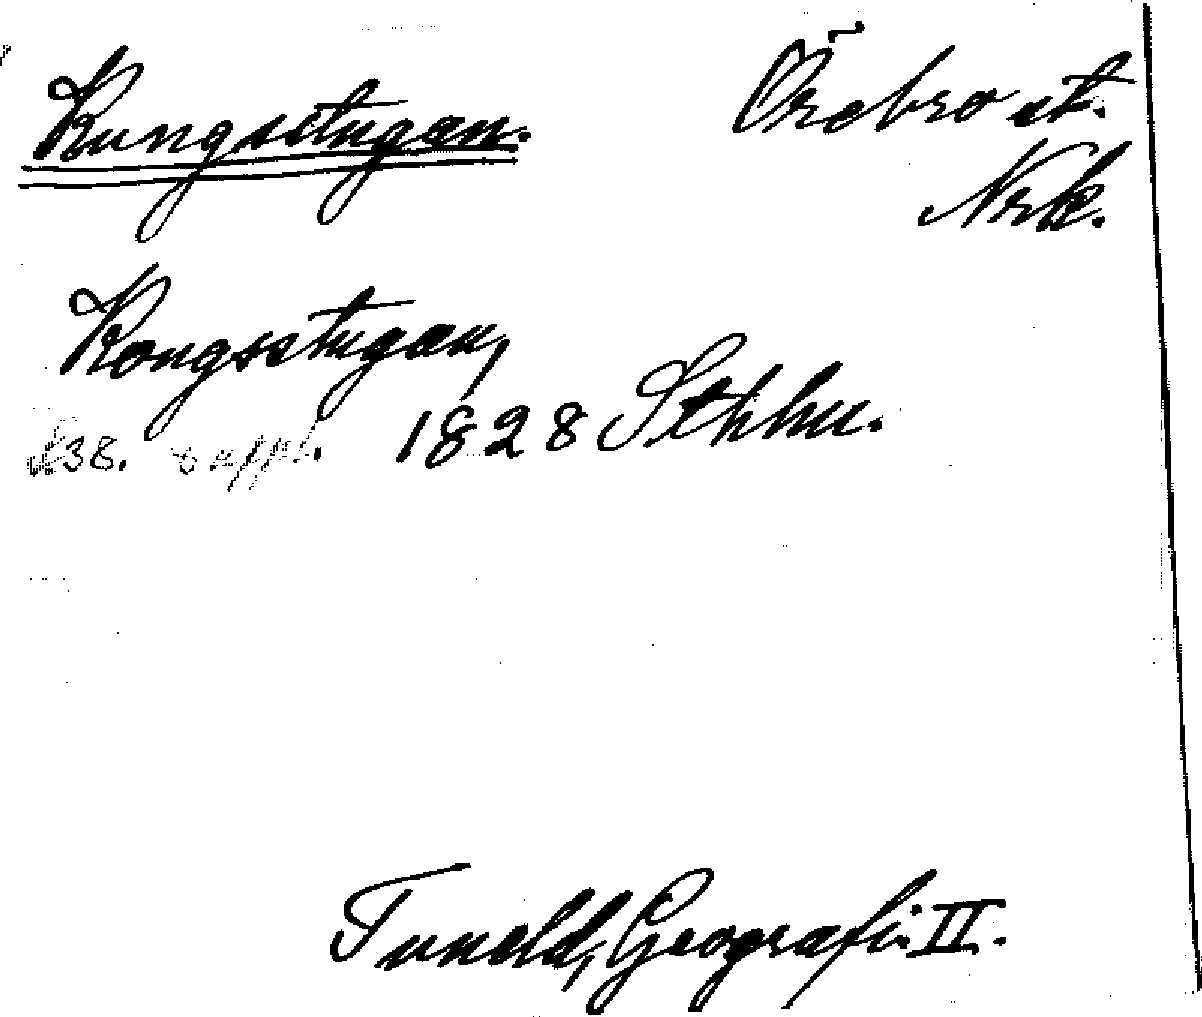 Kungsstugan. Örebro st.
Nrk.
Kongsstugan,
s. 38. 8 uppl. 1828 Sthlm.
Tuneld, Geografi. II.